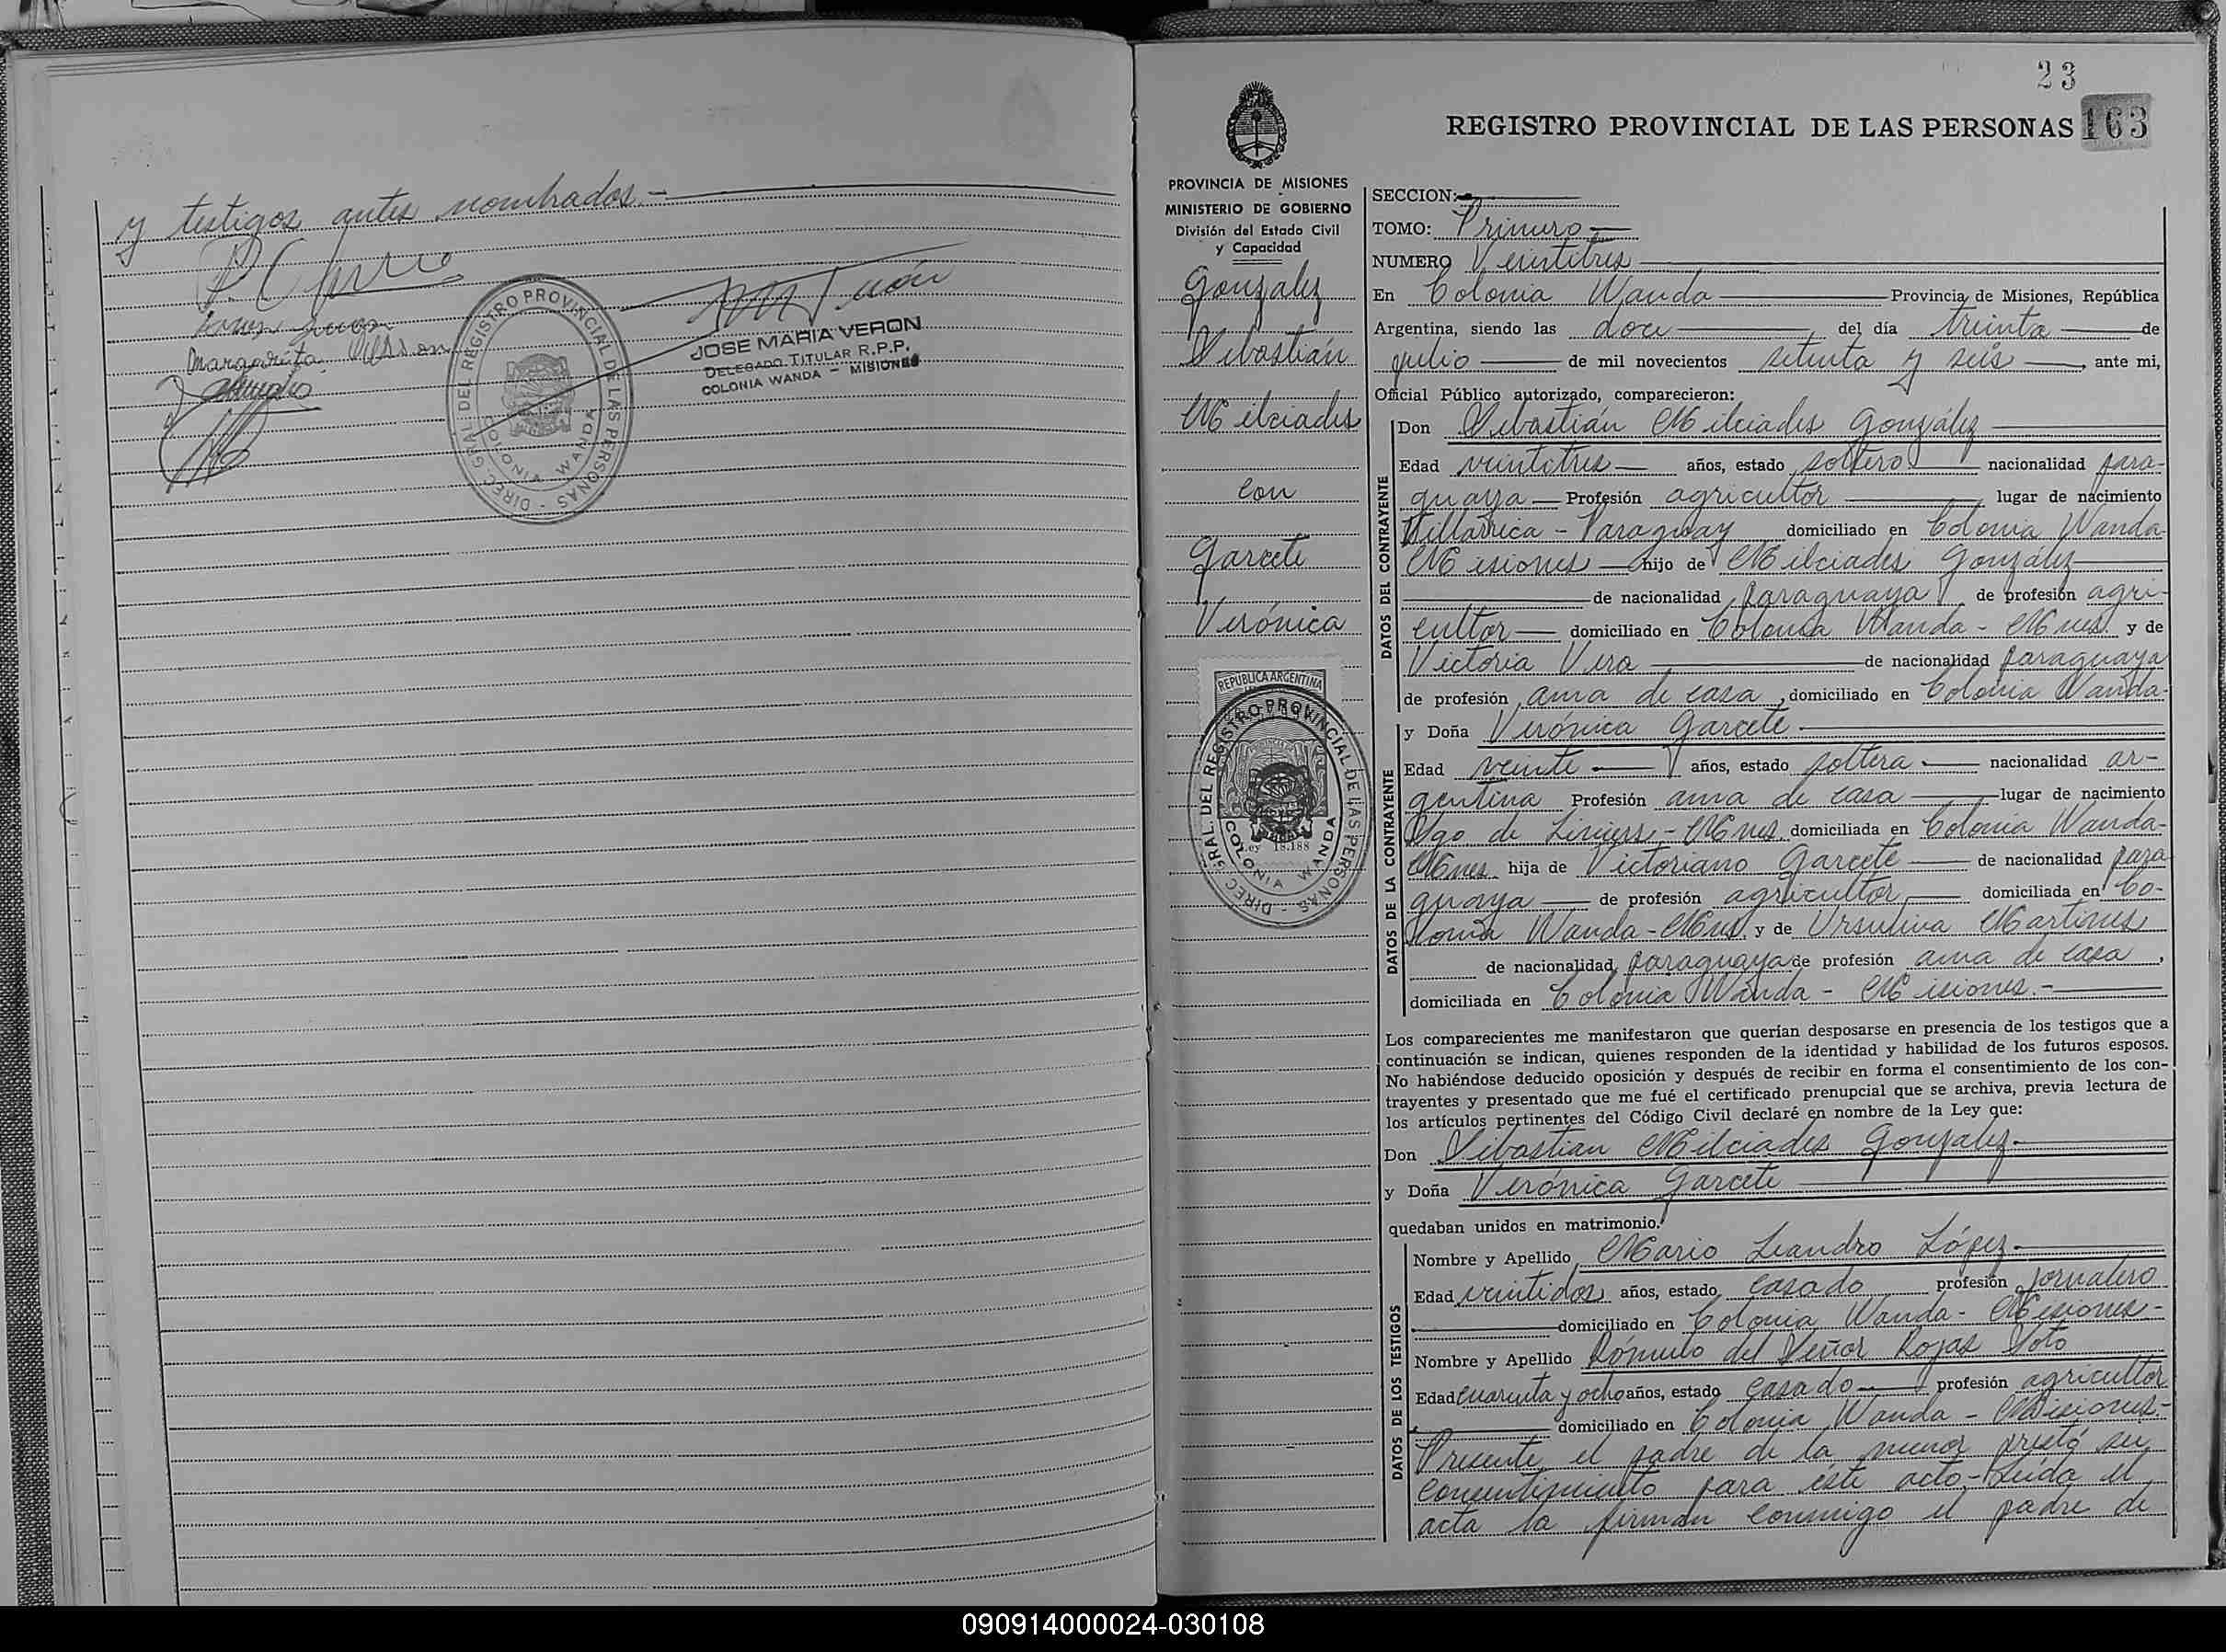 y testigos antes nombrados.-
JOSE MARIA VERON
DELEGADO TITULAR R.P.P.
COLONIA WANDA - MISIONES
DIREC. GRAL. DEL REGISTRO PROVINCIAL DE LAS PERSONAS -
COLONIA WANDA
Margarita
23
REGISTRO PROVINCIAL DE LAS PERSONAS 163
PROVINCIA DE MISIONES
MINISTERIO DE GOBIERNO
División del Estado Civil
y Capacidad
Gonzalez
Sebastián
Milciades
con
Garcete
Verónica
REPUBLICA ARGENTINA
DIREC. GRAL. DEL REGISTRO PROVINCIAL DE LAS PERSONAS -
COLONIA WANDA
Ley 18.188
SECCION:
TOMO: Primero
NUMERO Veintitres
En Colonia Wanda Provincia de Misiones, República
Argentina, siendo las doce del día treinta de
julio de mil novecientos setenta y seis, ante mi,
Oficial Público autorizado, comparecieron:
DATOS DEL CONTRAYENTE
Don Sebastián Milciades González
Edad veintitres años, estado soltero nacionalidad para-
guaya Profesión agricultor lugar de nacimiento
Villarrica - Paraguay domiciliado en Colonia Wanda-
Misiones hijo de Milciades González
de nacionalidad paraguaya de profesión agri-
cultor domiciliado en Colonia Wanda - Mnes. y de
Victoria Vera de nacionalidad paraguaya
de profesión ama de casa, domiciliado en Colonia Wanda-
DATOS DE LA CONTRAYENTE
y Doña Verónica Garcete
Edad veinte años, estado soltera nacionalidad ar-
gentina Profesión ama de casa lugar de nacimiento
Pgo. de Liniers - Mnes. domiciliada en Colonia Wanda-
Mnes. hija de Victoriano Garcete de nacionalidad para
guaya de profesión agricultor, domiciliada en Co-
lonia Wanda - Mnes. y de Ursulina Martines
de nacionalidad paraguaya de profesión ama de casa,
domiciliada en Colonia Wanda - Misiones.-
Los comparecientes me manifestaron que querían desposarse en presencia de los testigos que a
continuación se indican, quienes responden de la identidad y habilidad de los futuros esposos.
No habiéndose deducido oposición y después de recibir en forma el consentimiento de los con-
trayentes y presentado que me fué el certificado prenupcial que se archiva, previa lectura de
los artículos pertinentes del Código Civil declaré en nombre de la Ley que:
Don Sebastian Milciades Gonzalez
y Doña Verónica Garcete
quedaban unidos en matrimonio.
DATOS DE LOS TESTIGOS
Nombre y Apellido Mario Leandro López
Edad veintidos años, estado casado profesión jornalero
domiciliado en Colonia Wanda - Misiones-
Nombre y Apellido Rómulo del Señor Rojas Soto
Edad cuarenta y ocho años, estado casado profesión agricultor
domiciliado en Colonia Wanda - Misiones-
Presente el padre de la menor prestó su
consentimiento para este acto.- Leída el
acta la firman conmigo el padre de
090914000024-030108